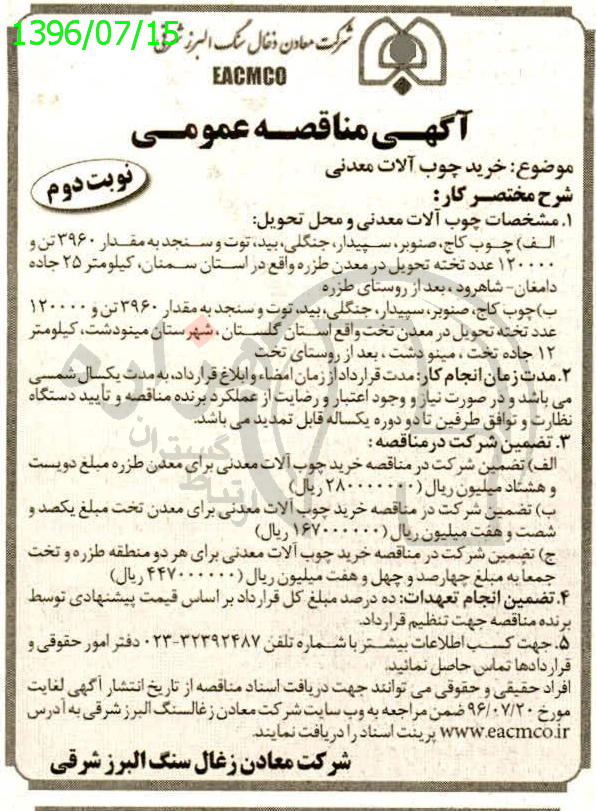 1396/07/15
شرکت معادن ذغال سنگ البرز شرقی
EACMCO
آگهی مناقصه عمومی
نوبت دوم
موضوع: خرید چوب آلات معدنی
شرح مختصر کار:
۱. مشخصات چوب آلات معدنی و محل تحویل:
الف) چوب کاج، صنوبر، سپیدار، جنگلی، بید، توت و سنجد به مقدار ۳۹۶۰ تن و
۱۲۰۰۰۰ عدد تخته تحویل در معدن طزره واقع در استان سمنان، کیلومتر ۲۵ جاده
دامغان- شاهرود، بعد از روستای طزره
ب) چوب کاج، صنوبر، سپیدار، جنگلی، بید، توت و سنجد به مقدار ۳۹۶۰ تن و ۱۲۰۰۰۰
عدد تخته تحویل در معدن تخت واقع استان گلستان، شهرستان مینودشت، کیلومتر
۱۲ جاده تخت، مینو دشت، بعد از روستای تخت
۲. مدت زمان انجام کار: مدت قرارداد از زمان امضاء و ابلاغ قرارداد، به مدت یکسال شمسی
می باشد و در صورت نیاز و وجود اعتبار و رضایت از عملکرد برنده مناقصه و تأیید دستگاه
نظارت و توافق طرفین تا دو دوره یکساله قابل تمدید می باشد.
۳. تضمین شرکت در مناقصه:
الف) تضمین شرکت در مناقصه خرید چوب آلات معدنی برای معدن طزره مبلغ دویست
و هشتاد میلیون ریال (۲۸۰۰۰۰۰۰۰ ریال)
ب) تضمین شرکت در مناقصه خرید چوب آلات معدنی برای معدن تخت مبلغ یکصد و
شصت و هفت میلیون ریال (۱۶۷۰۰۰۰۰۰ ریال)
ج) تضمین شرکت در مناقصه خرید چوب آلات معدنی برای هر دو منطقه طزره و تخت
جمعا به مبلغ چهارصد و چهل و هفت میلیون ریال (۴۴۷۰۰۰۰۰۰ ریال)
۴. تضمین انجام تعهدات: ده درصد مبلغ کل قرارداد بر اساس قیمت پیشنهادی توسط
برنده مناقصه جهت تنظیم قرارداد.
۵. جهت کسب اطلاعات بیشتر با شماره تلفن ۳۲۳۹۲۴۸۷-۰۲۳ دفتر امور حقوقی و
قراردادها تماس حاصل نمائید.
افراد حقیقی و حقوقی می توانند جهت دریافت اسناد مناقصه از تاریخ انتشار آگهی لغایت
مورخ ۹۶/۰۷/۲۰ ضمن مراجعه به وب سایت شرکت معادن زغالسنگ البرز شرقی به آدرس
www.eacmco.ir پرینت اسناد را دریافت نمایند.
شرکت معادن زغال سنگ البرز شرقی